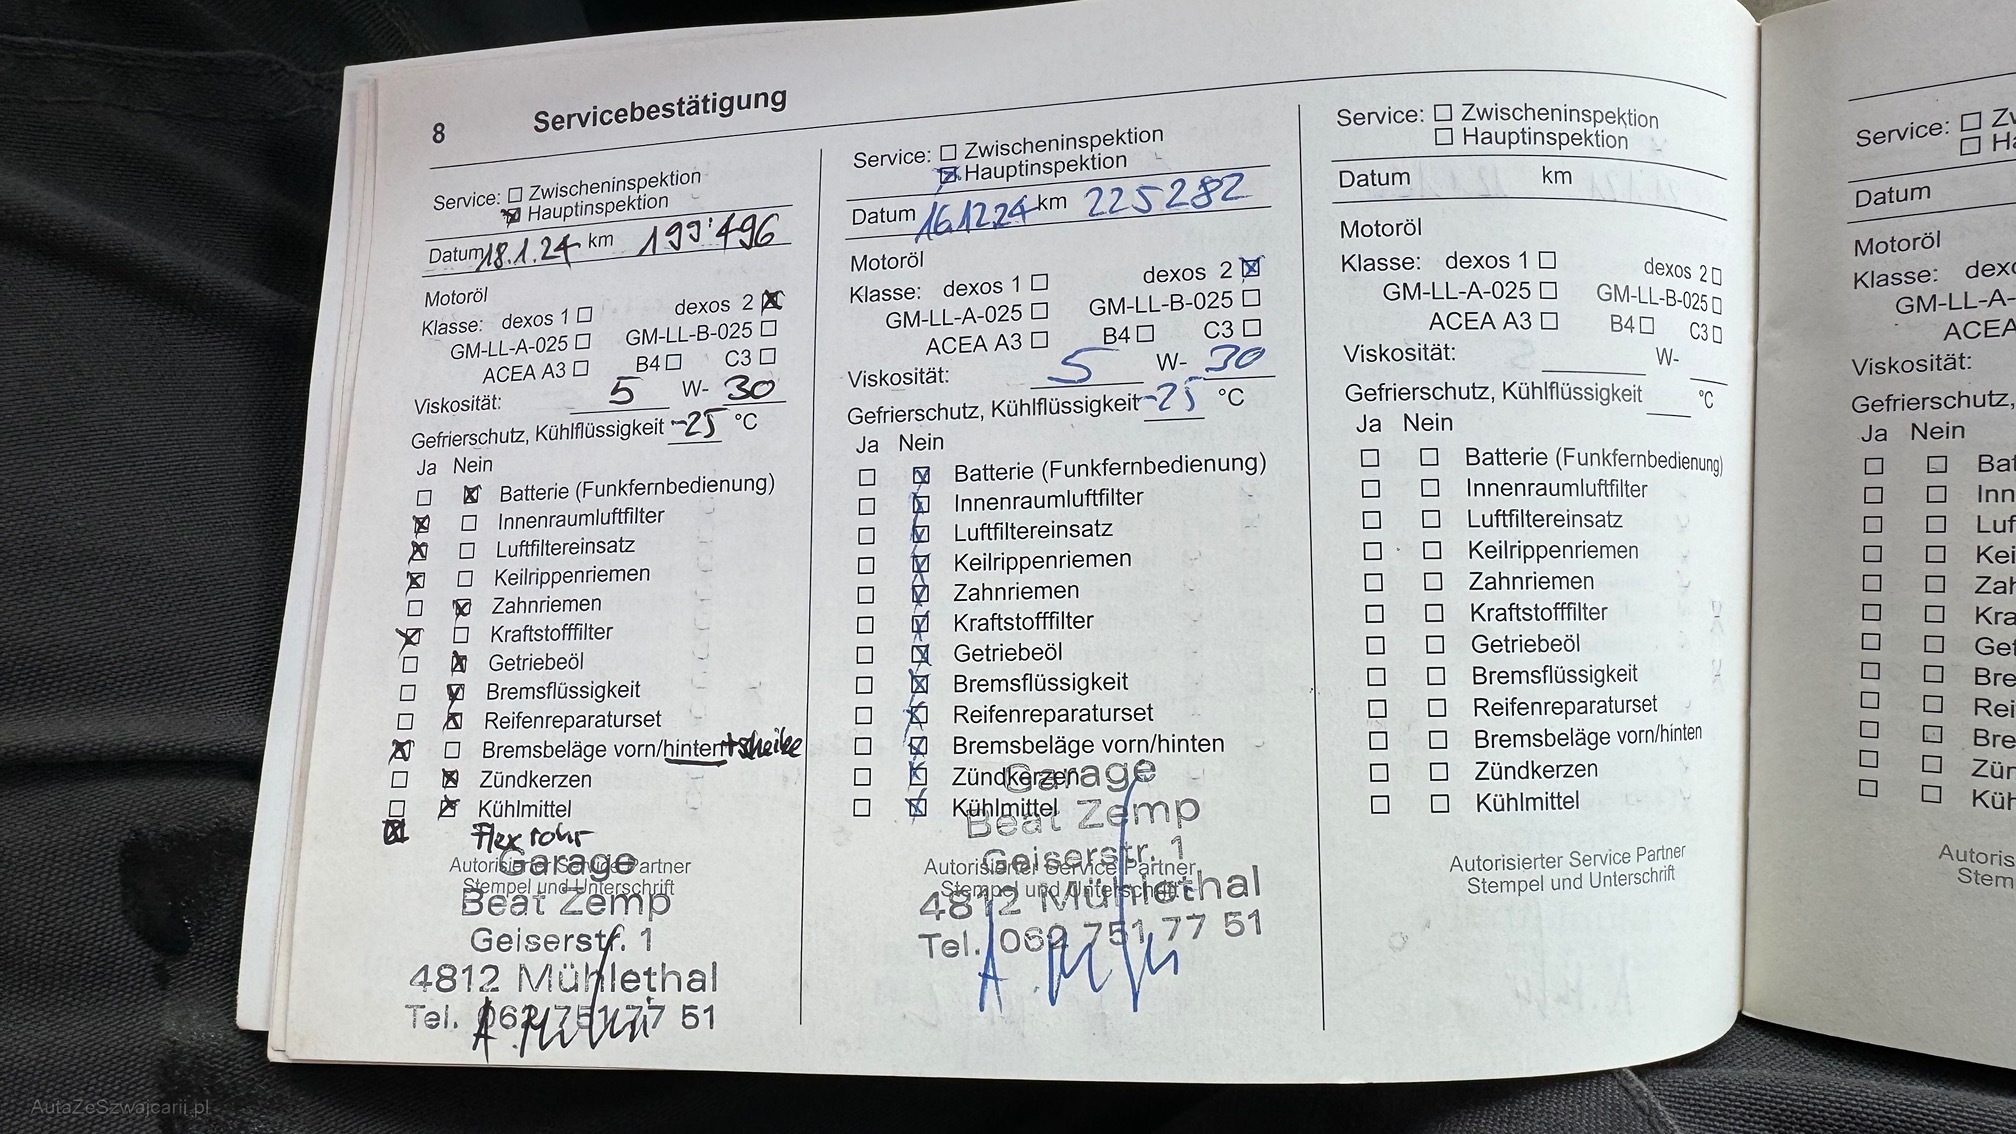 8 Servicebestätigung
Service: Zwischeninspektion
Hauptinspektion
Datum 18.1.24 km 199'496
Motoröl
Klasse: dexos 1 dexos 2
GM-LL-A-025 GM-LL-B-025
ACEA A3 B4 C3
Viskosität: 5 W- 30
Gefrierschutz, Kühlflüssigkeit -25 °C
Ja Nein
Batterie (Funkfernbedienung)
Innenraumluftfilter
Luftfiltereinsatz
Keilrippenriemen
Zahnriemen
Kraftstofffilter
Getriebeöl
Bremsflüssigkeit
Reifenreparaturset
Bremsbeläge vorn/hinten + Scheibe
Zündkerzen
Kühlmittel
Flexrohr
Autorisierter Service Partner
Stempel und Unterschrift
Garage
Beat Zemp
Geiserstr. 1
4812 Mühlethal
Tel. 062 751 77 51
Service: Zwischeninspektion
Hauptinspektion
Datum 16.12.24 km 225282
Motoröl
Klasse: dexos 1 dexos 2
GM-LL-A-025 GM-LL-B-025
ACEA A3 B4 C3
Viskosität: 5 W- 30
Gefrierschutz, Kühlflüssigkeit -25 °C
Ja Nein
Batterie (Funkfernbedienung)
Innenraumluftfilter
Luftfiltereinsatz
Keilrippenriemen
Zahnriemen
Kraftstofffilter
Getriebeöl
Bremsflüssigkeit
Reifenreparaturset
Bremsbeläge vorn/hinten
Zündkerzen
Kühlmittel
Autorisierter Service Partner
Stempel und Unterschrift
Garage
Beat Zemp
Geiserstr. 1
4812 Mühlethal
Tel. 062 751 77 51
Service: Zwischeninspektion
Hauptinspektion
Datum km
Motoröl
Klasse: dexos 1 dexos 2
GM-LL-A-025 GM-LL-B-025
ACEA A3 B4 C3
Viskosität: W-
Gefrierschutz, Kühlflüssigkeit °C
Ja Nein
Batterie (Funkfernbedienung)
Innenraumluftfilter
Luftfiltereinsatz
Keilrippenriemen
Zahnriemen
Kraftstofffilter
Getriebeöl
Bremsflüssigkeit
Reifenreparaturset
Bremsbeläge vorn/hinten
Zündkerzen
Kühlmittel
Autorisierter Service Partner
Stempel und Unterschrift
Service: Zw
Ha
Datum
Motoröl
Klasse: dexo
GM-LL-A-
ACEA
Viskosität:
Gefrierschutz,
Ja Nein
Bat
Inn
Luf
Kei
Zah
Kra
Get
Bre
Rei
Bre
Zün
Küh
Autoris
Stem
AutaZeSzwajcarii.pl